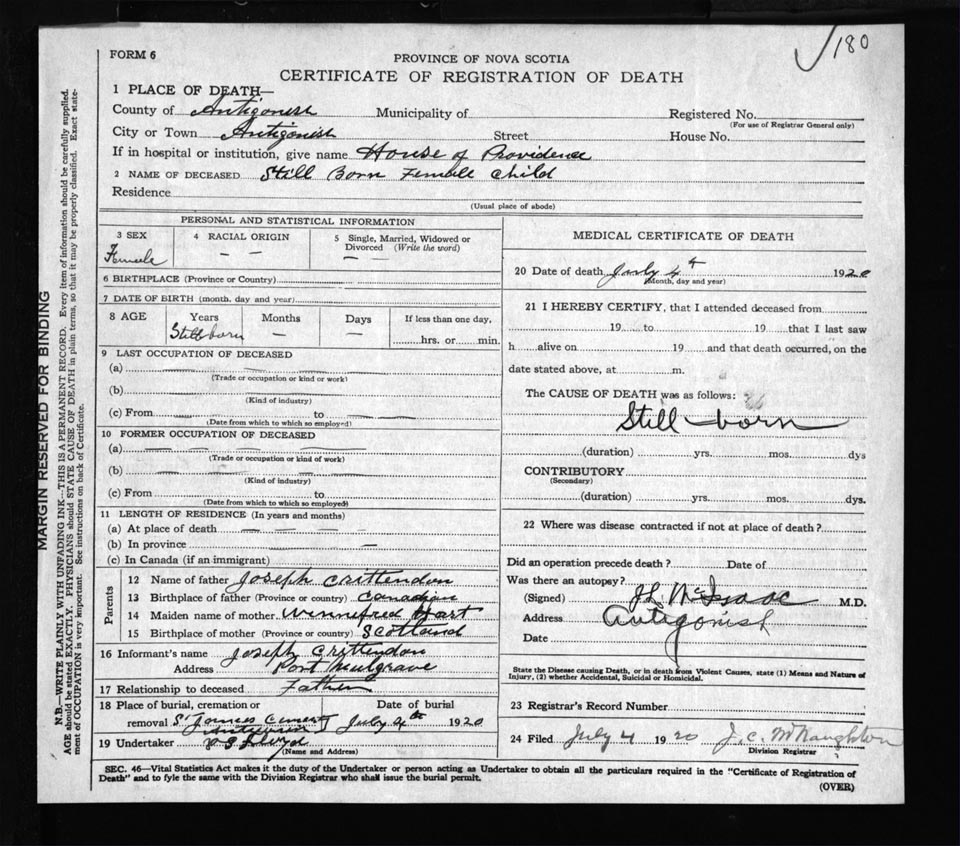 180
FORM 6
PROVINCE OF NOVA SCOTIA
CERTIFICATE OF REGISTRATION OF DEATH
1 PLACE OF DEATH—
County of Antigonish Municipality of Registered No.
(For use of Registrar General only)
City or Town Antigonish Street House No.
If in hospital or institution, give name House of Providence
2 NAME OF DECEASED Still Born Female Child
Residence
(Usual place of abode)
PERSONAL AND STATISTICAL INFORMATION
3 SEX 4 RACIAL ORIGIN 5 Single, Married, Widowed or
Divorced (Write the word)
Female — — — —
6 BIRTHPLACE (Province or Country)
7 DATE OF BIRTH (month, day and year)
8 AGE Years Months Days If less than one day,
Stillborn — — hrs. or min.
9 LAST OCCUPATION OF DECEASED
(a)
(Trade or occupation or kind or work)
(b)
(Kind of industry)
(c) From to
(Date from which to which so employed)
10 FORMER OCCUPATION OF DECEASED
(a)
(Trade or occupation or kind of work)
(b)
(Kind of industry)
(c) From to
(Date from which to which so employed)
11 LENGTH OF RESIDENCE (In years and months)
(a) At place of death
(b) In province
(c) In Canada (if an immigrant)
Parents
12 Name of father Joseph Crittendon
13 Birthplace of father (Province or country) Canadian
14 Maiden name of mother Winnifred Hart
15 Birthplace of mother (Province or country) Scotland
16 Informant's name Joseph Crittendon
Address Port Mulgrave
17 Relationship to deceased Father
18 Place of burial, cremation or Date of burial
removal St July 4th 1920
19 Undertaker
(Name and Address)
MEDICAL CERTIFICATE OF DEATH
20 Date of death July 4th 1920
(Month, day and year)
21 I HEREBY CERTIFY, that I attended deceased from
19 to 19 that I last saw
h alive on 19 and that death occurred, on the
date stated above, at m.
The CAUSE OF DEATH was as follows:
Still born
(duration) yrs. mos. dys
CONTRIBUTORY
(Secondary)
(duration) yrs. mos. dys.
22 Where was disease contracted if not at place of death?
Did an operation precede death? Date of
Was there an autopsy?
(Signed) McIsaac M.D.
Address Antigonish
Date
State the Disease causing Death, or in death from Violent Causes, state (1) Means and Nature of
Injury, (2) whether Accidental, Suicidal or Homicidal.
23 Registrar's Record Number
24 Filed July 4 1920 J. C. McNaughton
Division Registrar
SEC. 46—Vital Statistics Act makes it the duty of the Undertaker or person acting as Undertaker to obtain all the particulars required in the "Certificate of Registration of
Death" and to fyle the same with the Division Registrar who shall issue the burial permit.
(OVER)
MARGIN RESERVED FOR BINDING
N.B.—WRITE PLAINLY WITH UNFADING INK—THIS IS A PERMANENT RECORD. Every item of information should be carefully supplied.
AGE should be stated EXACTLY. PHYSICIANS should STATE CAUSE OF DEATH in plain terms, so that it may be properly classified. Exact state-
ment of OCCUPATION is very important. See instructions on back of Certificate.